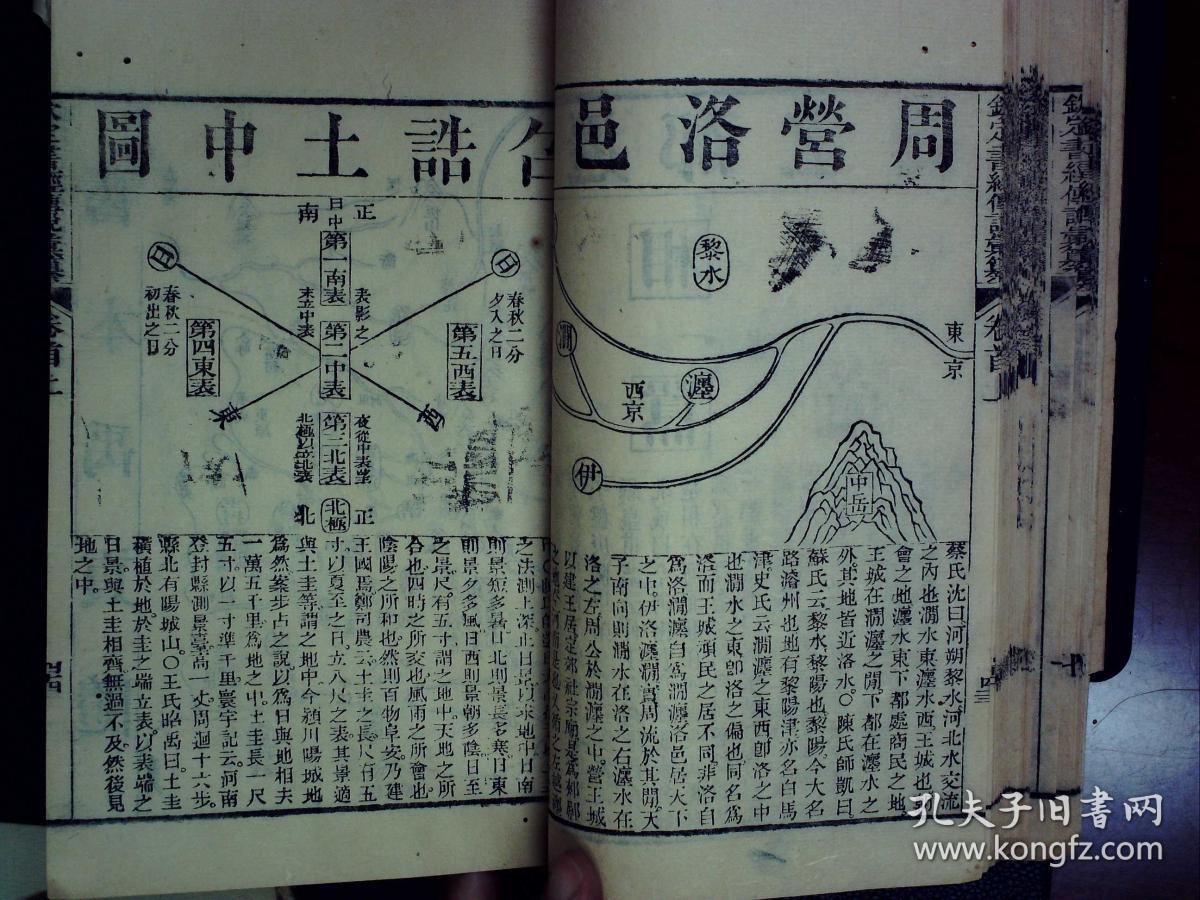 周營洛邑
告誥土中圖
黎水
澗
瀍
西京
東京
伊
中岳
蔡氏沈曰河朔黎水河北水交流
之內也澗水東瀍水西王城也朝
會之地瀍水東下都處商民之地
王城在澗瀍之閒下都在瀍水之
外其地皆近洛水○陳氏師凱曰
蘇氏云黎水黎陽也黎陽今大名
路濬州也地有黎陽津亦名白馬
津史氏云澗瀍之東西卽洛之中
也澗水之東卽洛之偏也同名爲
洛而王城頑民之居不同非洛自
爲洛澗瀍自爲澗瀍洛邑居天下
之中伊洛瀍澗實周流於其閒天
子南向則澗水在洛之右瀍水在
洛之左周公於澗瀍之中營王城
以建王居定郊社宗廟是爲郟鄏
正南
日中
第一南表
表影之
末立中表
第二中表
日
春秋二分
夕入之日
第五西表
西
日
春秋二分
初出之日
第四東表
東
夜從中表望
北極以立北表
第三北表
北極
正北
之法測土深正日景以求地中日南
則景短多暑日北則景長多寒日東
則景夕多風日西則景朝多陰日至
之景尺有五寸謂之地中天地之所
合也四時之所交也風雨之所會也
陰陽之所和也然則百物阜安乃建
王國焉鄭司農云土圭之長尺有五
寸以夏至之日立八尺之表其景適
與土圭等謂之地中今潁川陽城地
爲然案步占之說以爲日與地相夫
一萬五千里爲地之中土圭長一尺
五寸以一寸準千里寰宇記云河南
登封縣測景臺高一丈周迴十六步
縣北有陽城山○王氏昭禹曰土圭
橫植於地於圭之端立表以表端之
日景與土圭相齊無過不及然後見
地之中
欽定書經傳說彙纂
卷首上
四三
四四
孔夫子旧书网
www.kongfz.com